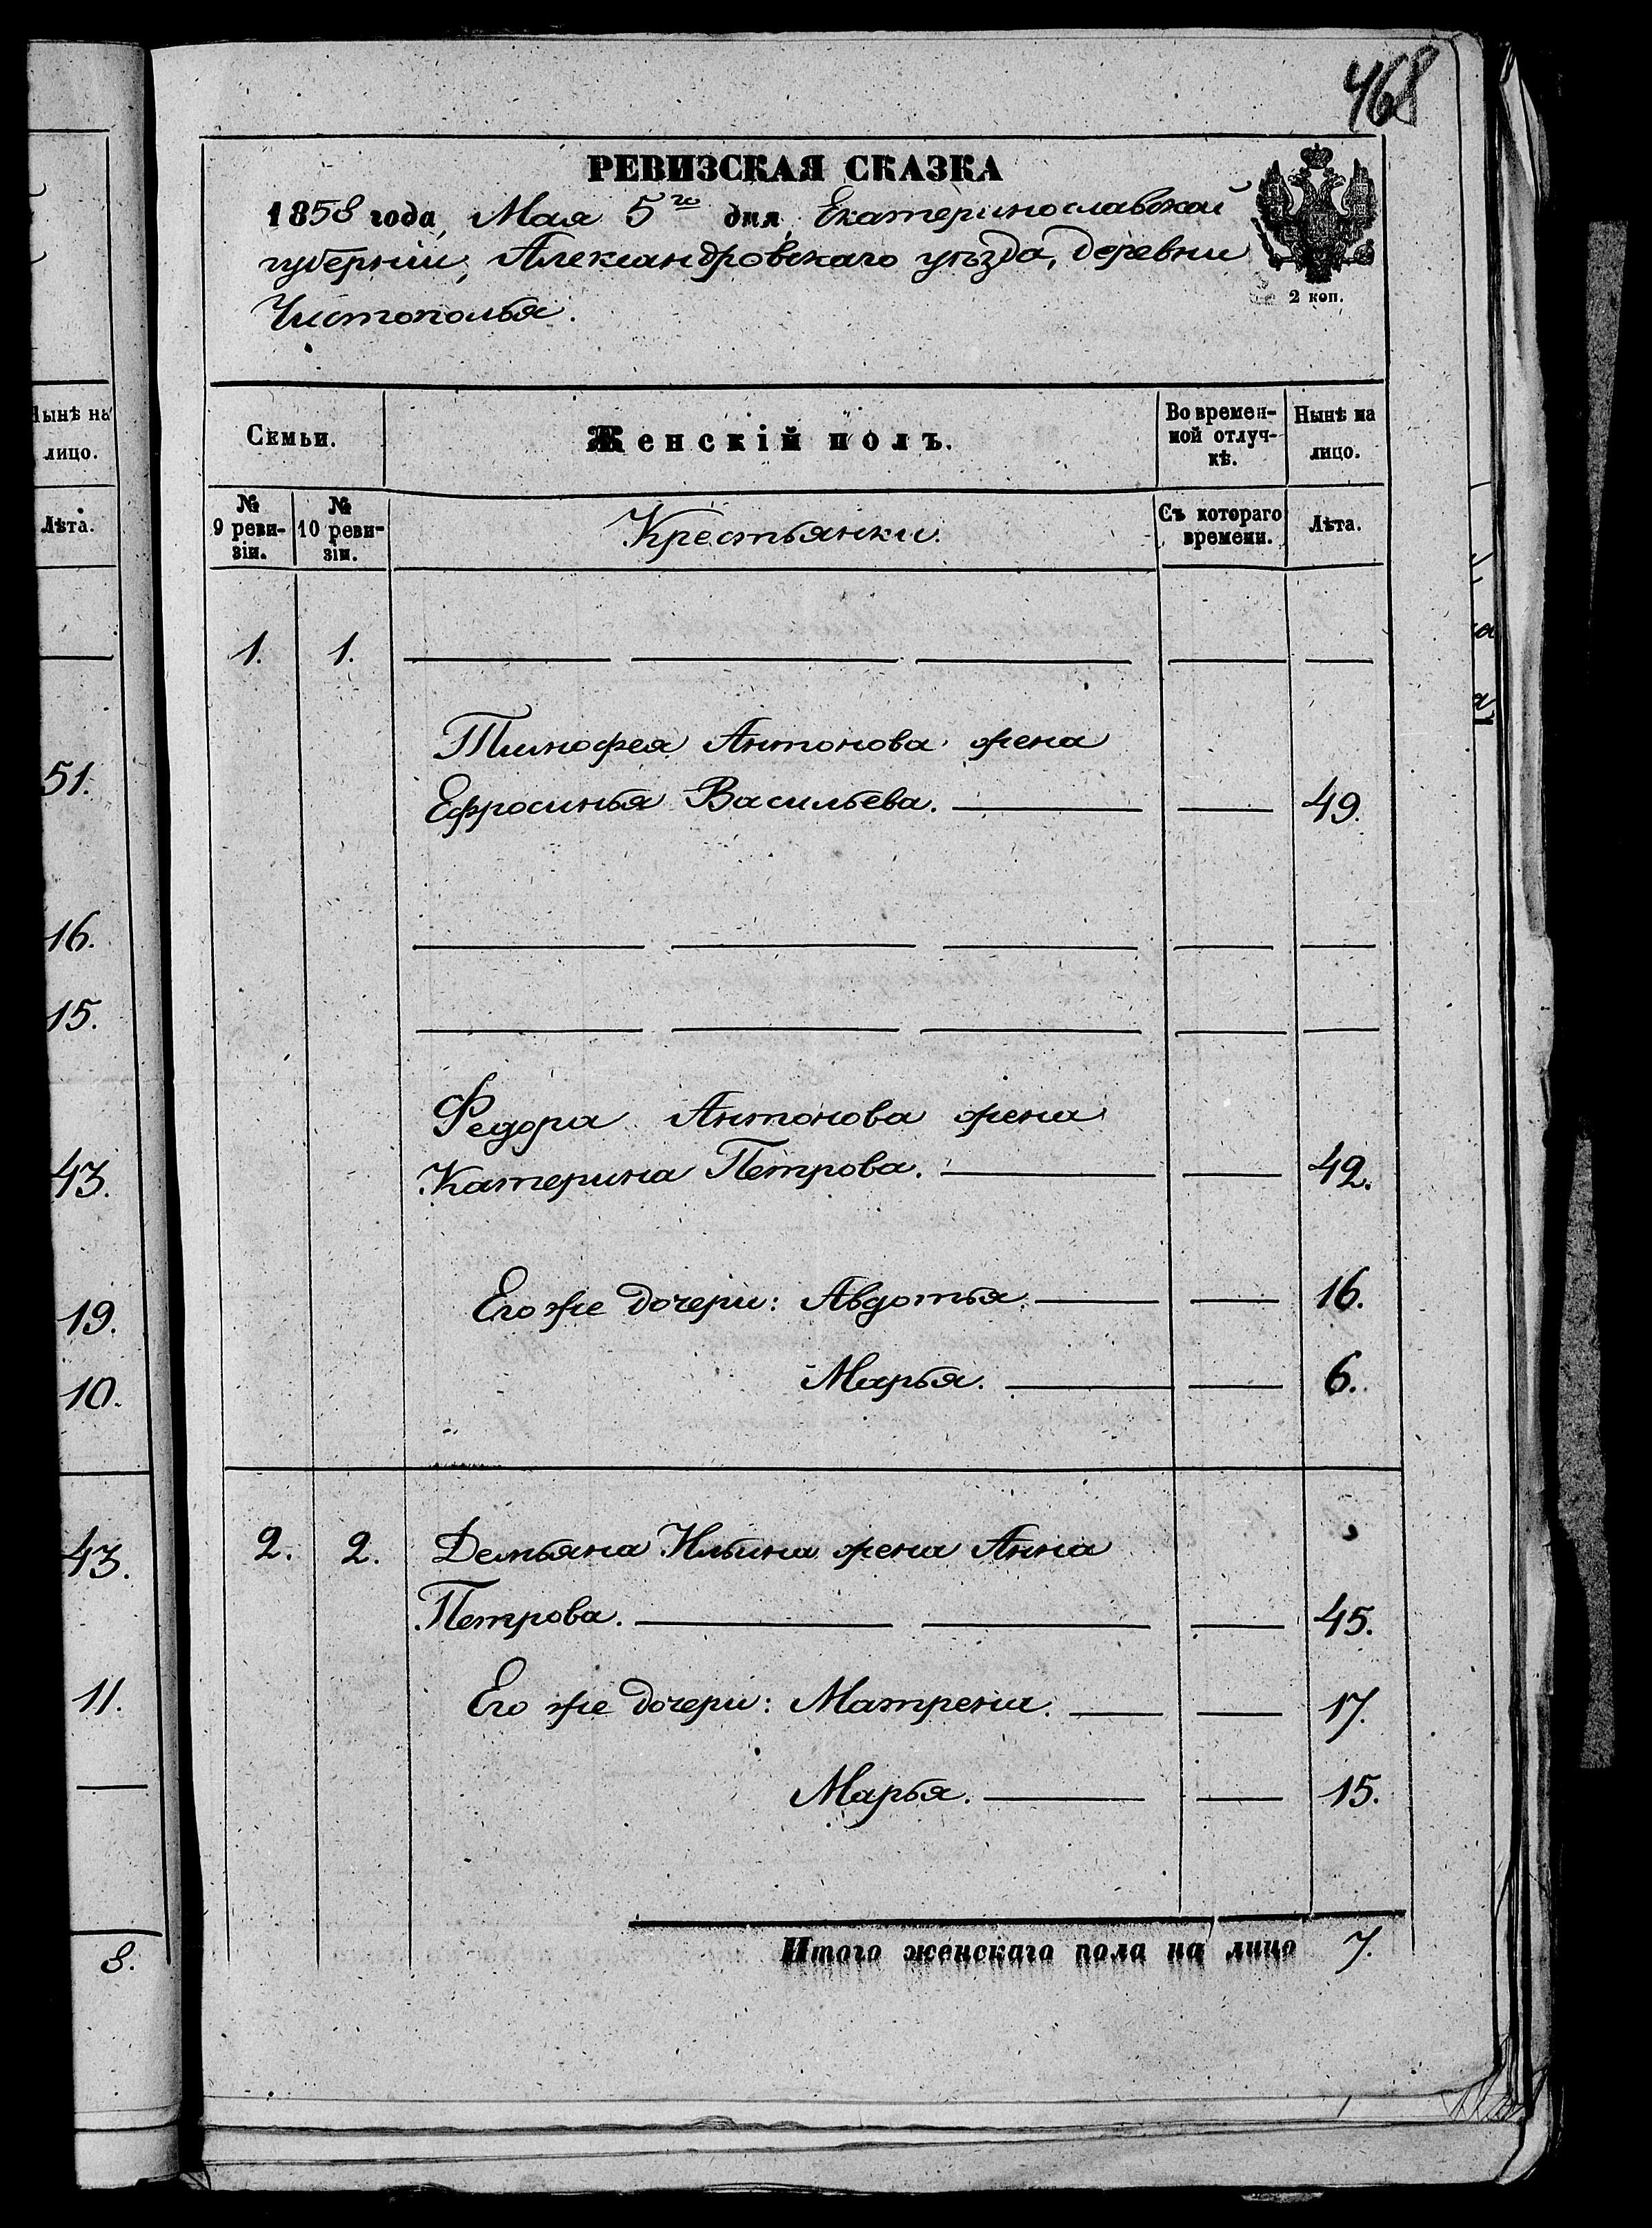 468
РЕВИЗСКАЯ СКАЗКА
1858 года, Мая 5го дня, Екатеринославской
губерніи, Александровскаго уѣзда, деревни
Чистополья.
2 коп.
Нынѣ на
лицо.
Лѣта.
51.
16.
15.
43.
19.
10.
43.
11.
8.
Семьи.
Женскій полъ.
Во времен-
ной отлуч-
кѣ.
Нынѣ на
лицо.
№
9 реви-
зіи.
№
10 реви-
зіи.
Крестьянки.
Съ котораго
времени.
Лѣта.
1. 1.
Тимофея Антонова жена
Ефросинья Васильева. 49.
Федора Антонова жена
Катерина Петрова. 42.
Его же дочери: Авдотья. 16.
Марья. 6.
2. 2. Демьяна Ильина жена Анна
Петрова. 45.
Его же дочери: Матрена. 17.
Марья. 15.
Итого женскаго пола на лицо 7.